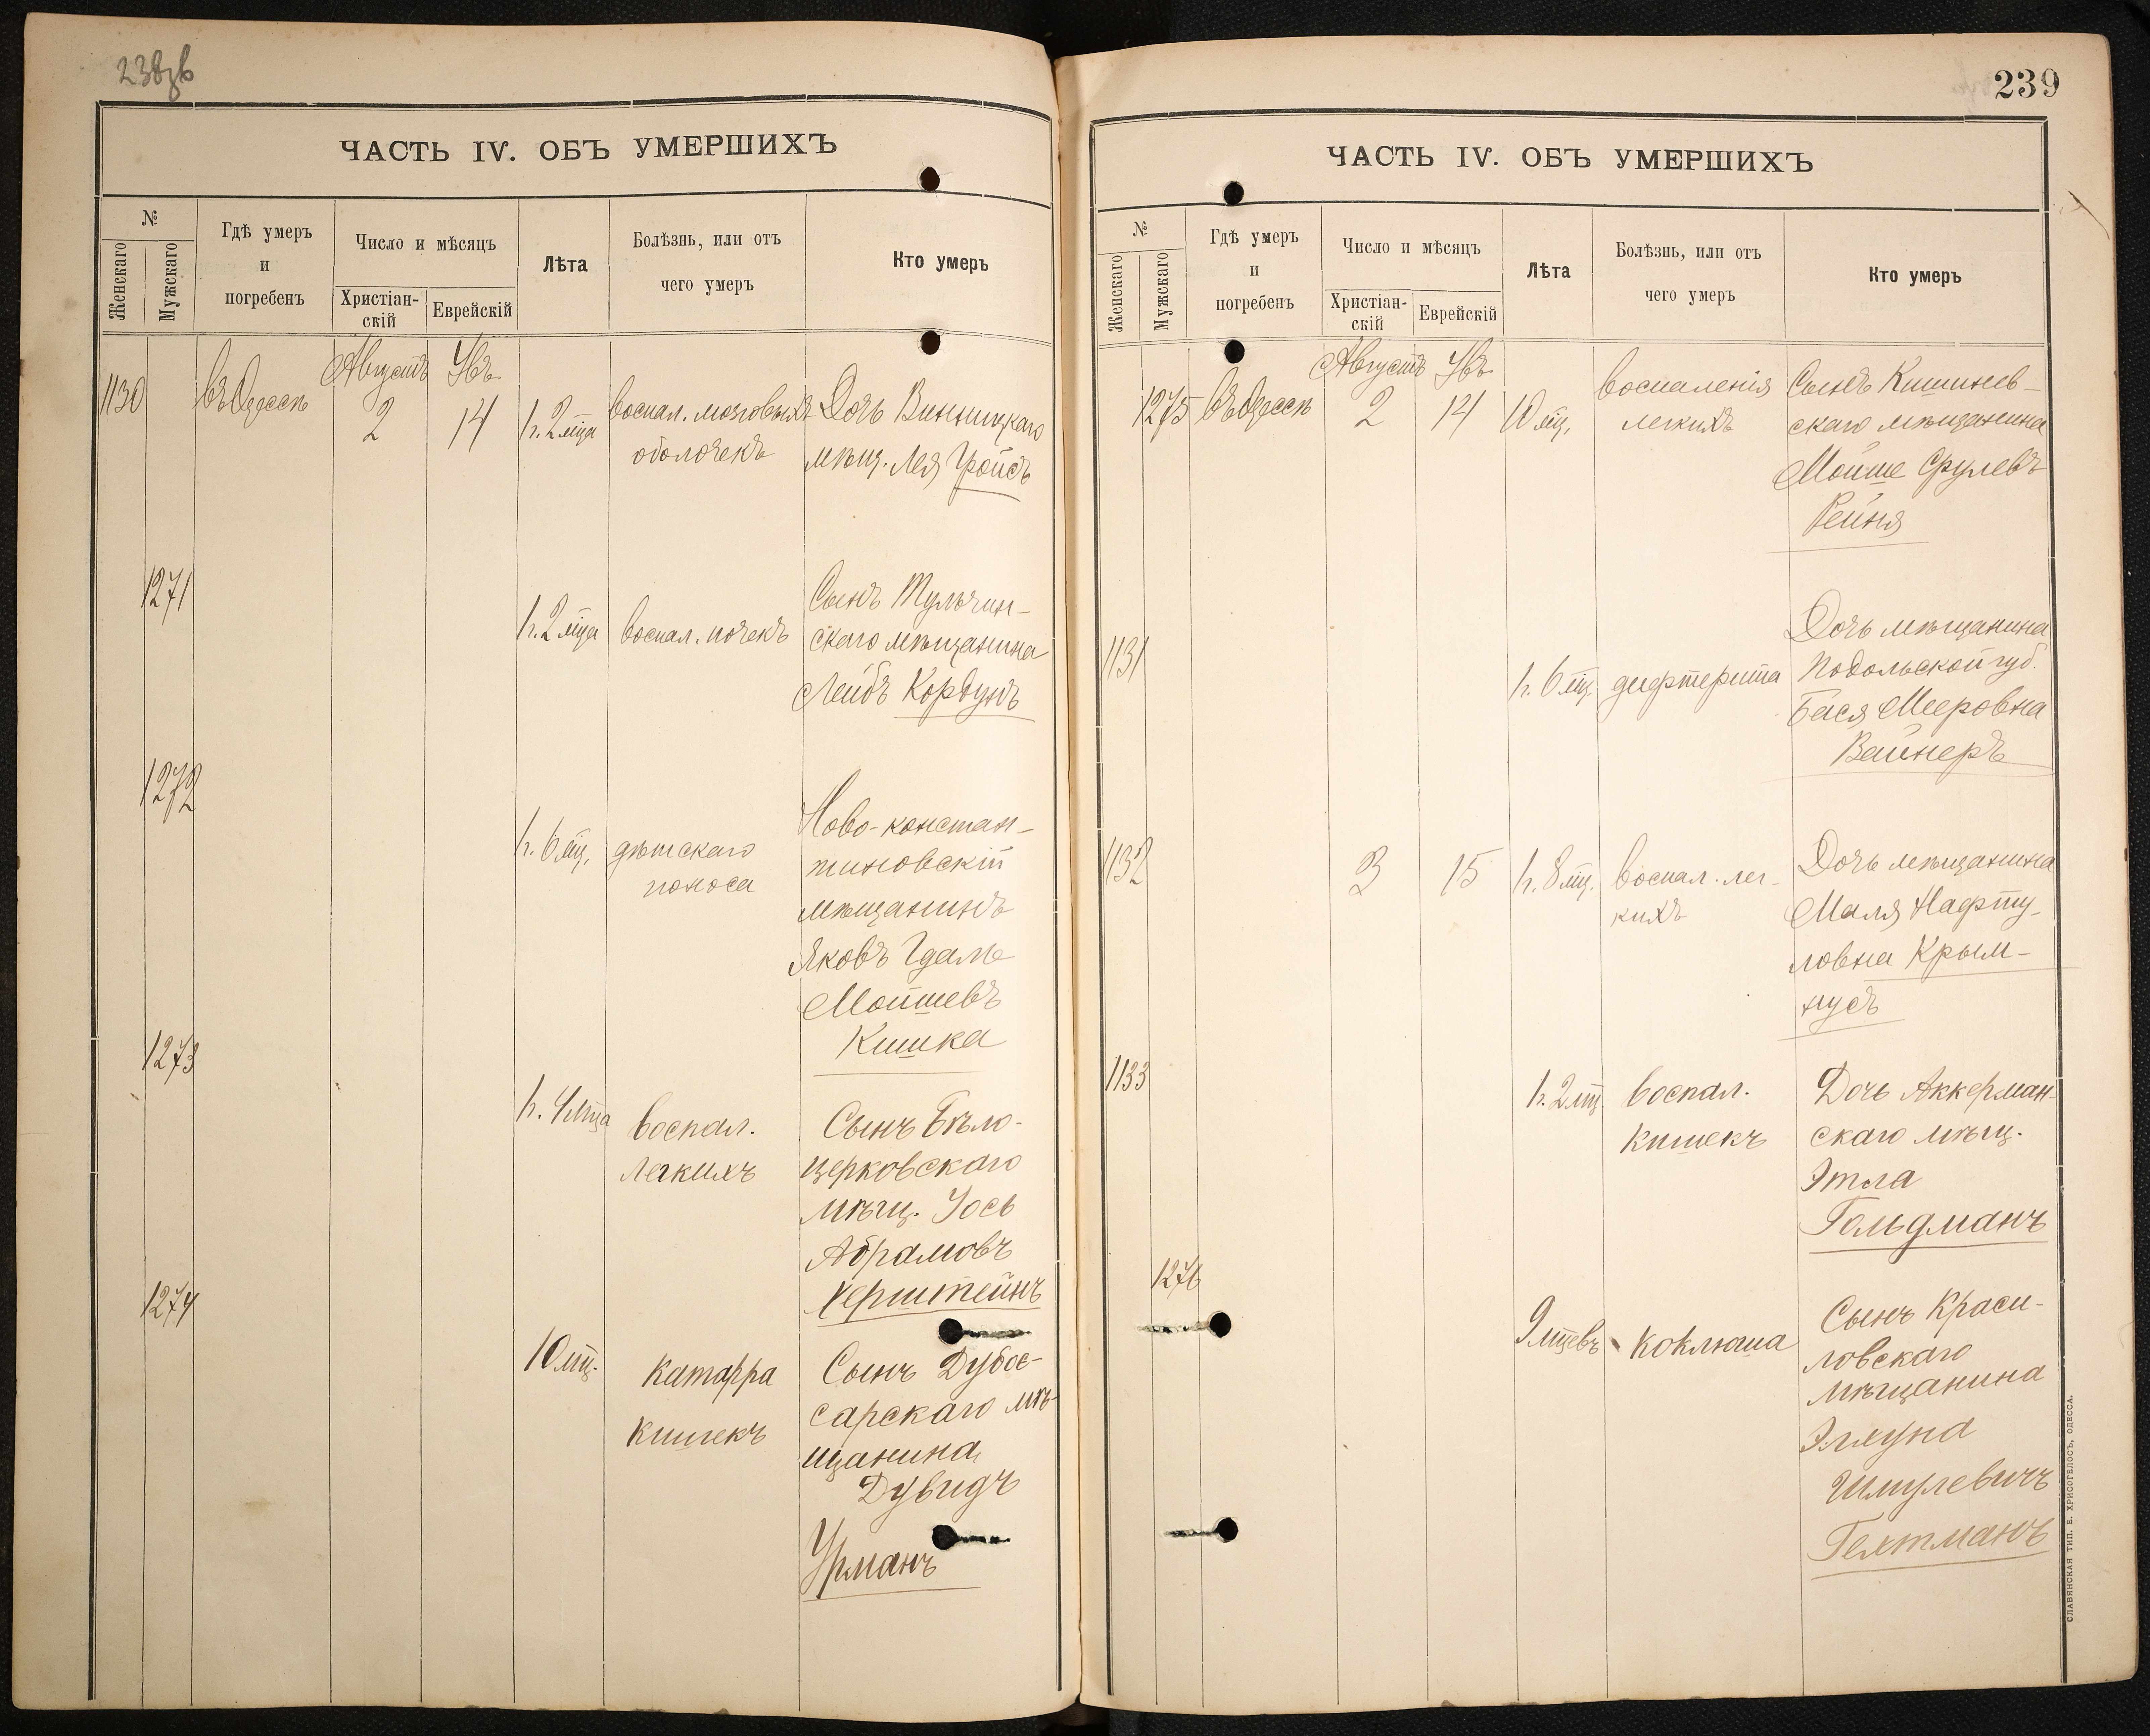 238зв
ЧАСТЬ IV. ОБЪ УМЕРШИХЪ
№
Женскаго
Мужскаго
Гдѣ умеръ
и
погребенъ
Число и мѣсяцъ
Христіан-
скій
Еврейскій
Лѣта
Болѣзнь, или отъ
чего умеръ
Кто умеръ
1130
въ Одессѣ
Августъ
2
Увъ
14
1 г. 2 мца
воспал. мозговыхъ
оболочекъ
Дочь Винницкаго
мѣщ. Лея Гройсъ
1271
1 г. 2 мца
воспал. почекъ
Сынъ Тульчин-
скаго мѣщанина
Лейбъ Корвунъ
1272
1 г. 6 мц.
дѣтскаго
поноса
Ново-констан-
тиновскій
мѣщанинъ
Яковъ Гдаль
Мойшевъ
Кишка
1273
1 г. 4 мца
воспал.
легкихъ
Сынъ Бѣло-
церковскаго
мѣщ. Іось
Абрамовъ
Керштейнъ
1274
10 мц.
катарра
кишекъ
Сынъ Дубос-
сарскаго мѣ-
щанина
Дувидъ
Урманъ
239
ЧАСТЬ IV. ОБЪ УМЕРШИХЪ
№
Женскаго
Мужскаго
Гдѣ умеръ
и
погребенъ
Число и мѣсяцъ
Христіан-
скій
Еврейскій
Лѣта
Болѣзнь, или отъ
чего умеръ
Кто умеръ
1275
въ Одессѣ
Августъ
2
Увъ
14
10 мц.
воспаленія
легкихъ
Сынъ Кишинев-
скаго мѣщанина
Мойше Срулевъ
Рейня
1131
1 г. 6 мц.
дифтерита
Дочь мѣщанина
Подольской губ.
Бася Мееровна
Вайнеръ
1132
3
15
1 г. 8 мц.
воспал. лег-
кихъ
Дочь мѣщанина
Маля Нафту-
ловна Крым-
нусъ
1133
1 г. 2 мц.
воспал.
кишекъ
Дочь Аккерман-
скаго мѣщ.
Этля
Гольдманъ
1276
9 мцевъ
коклюша
Сынъ Краси-
ловскаго
мѣщанина
Шмулевичъ
Гехтманъ
СЛАВЯНСКАЯ ТИП. Е. ХРИСОГЕЛОСЪ, ОДЕССА.